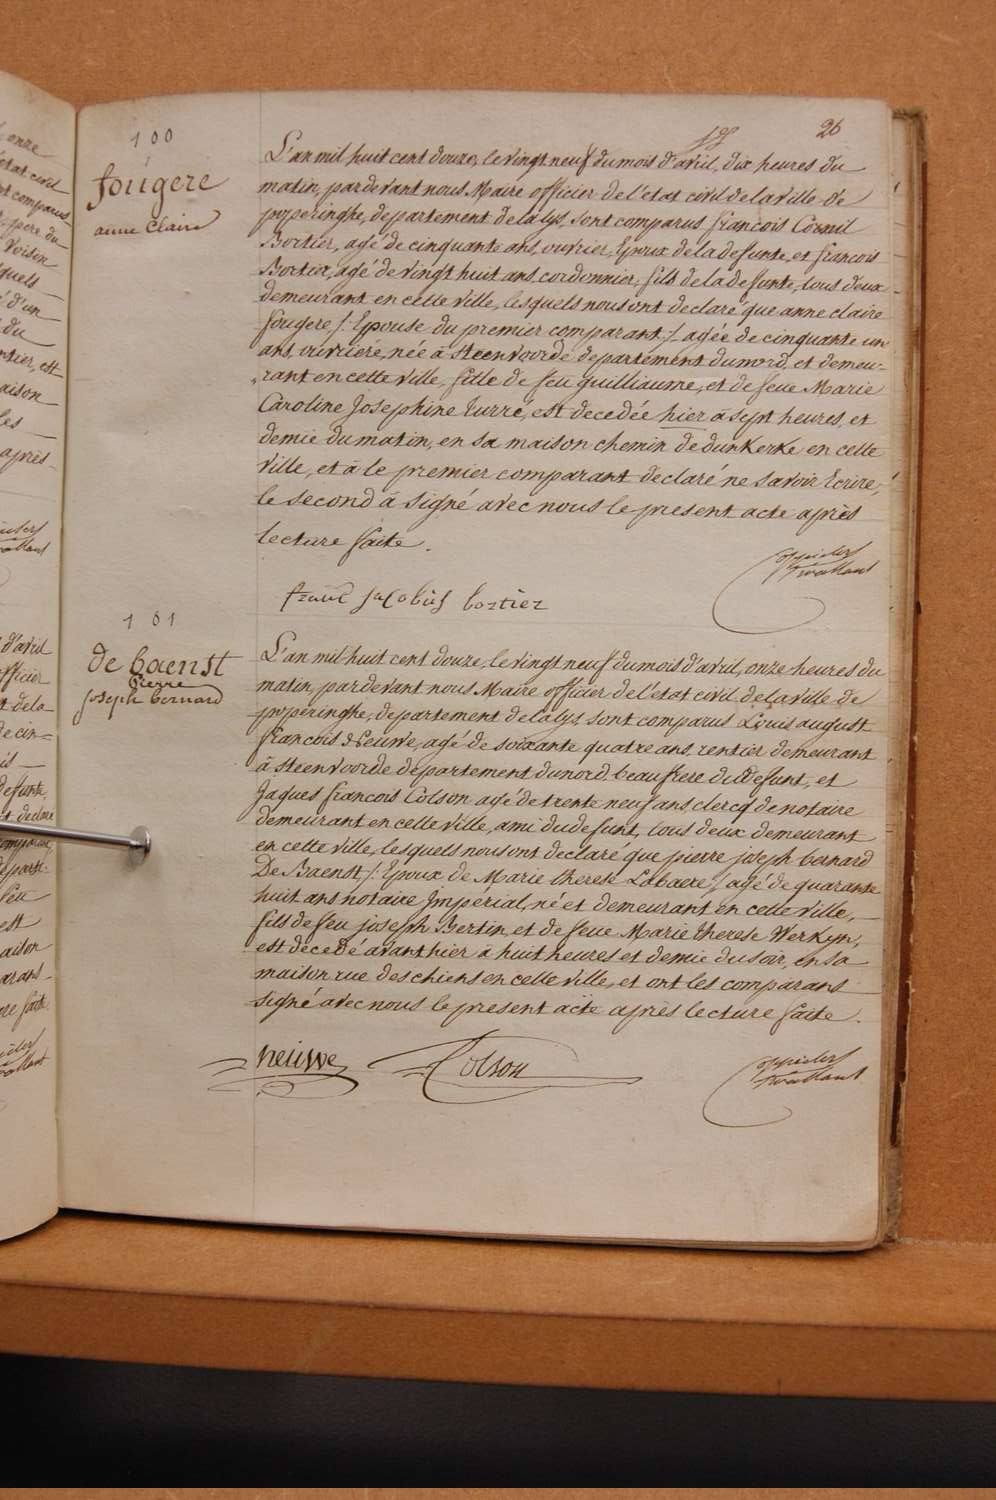 26
100
fougere
anne Claire
L'an mil huit cent douze, le vingt neuf du mois d'avril, dix heures du
matin, pardevant nous Maire officier de l'etat civil de la ville de
poperinghe, departement de la lys, sont comparus françois Cornil
Bortier, agé de cinquante ans, ouvrier, Epoux de la defunte, et françois
Bortier, agé de vingt huit ans, cordonnier, fils de la defunte, tous deux
demeurant en cette ville, lesquels nous ont declaré que anne claire
fougere /: Epouse du premier comparant :/ agée de cinquante un
ans, ouvriere, née à Steenvoorde departement du nord, et demeu-
rant en cette ville, fille de feu guilliaume, et de feue Marie
Caroline Josephine turré, est decedée hier à sept heures, et
demie du matin, en sa maison chemin de dunkerke en cette
ville, et à le premier comparant declaré ne savoir Ecrire,
le second à signé avec nous le present acte après
lecture faite.
jacobus bortier
101
de baenst
Pierre
joseph bernard
L'an mil huit cent douze, le vingt neuf du mois d'avril, onze heures du
matin, pardevant nous Maire officier de l'etat civil de la ville de
poperinghe, departement de la lys sont comparus Louis august
francois deneuwe, agé de soixante quatre ans, rentier demeurant
à Steenvoorde departement du nord beaufrere du defunt, et
Jaques francois Colson agé de trente neuf ans clercq de notaire
demeurant en cette ville, ami du defunt, tous deux demeurant
en cette ville, lesquels nous ont declaré que pierre joseph bernard
De Baenst /: Epoux de Marie therese Labaere :/ agé de quarante
huit ans notaire Impérial, né et demeurant en cette ville,
fils de feu joseph Bertin, et de feue Marie therese Werkyn,
est décedé avant hier à huit heures et demie du soir, en sa
maison rue des chiens en cette ville, et ont les comparans
signé avec nous le present acte après lecture faite.
neuwe Colson